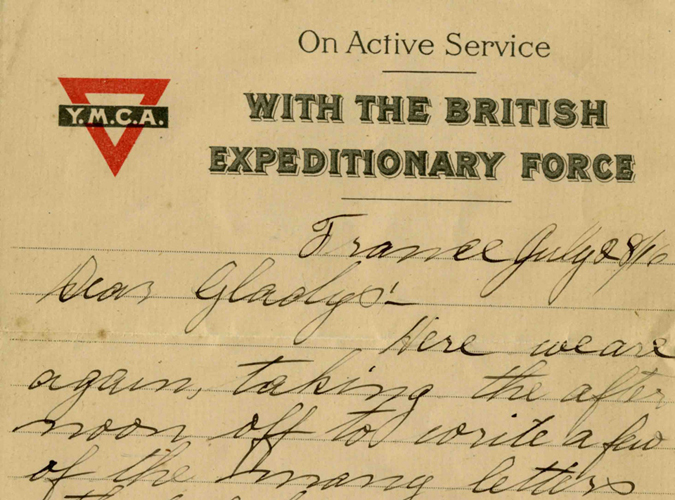 On Active Service
Y.M.C.A.
WITH THE BRITISH
EXPEDITIONARY FORCE
France July 28/16
Dear Gladys:-
Here we are
again, taking the after
noon off to write a few
of the many letters